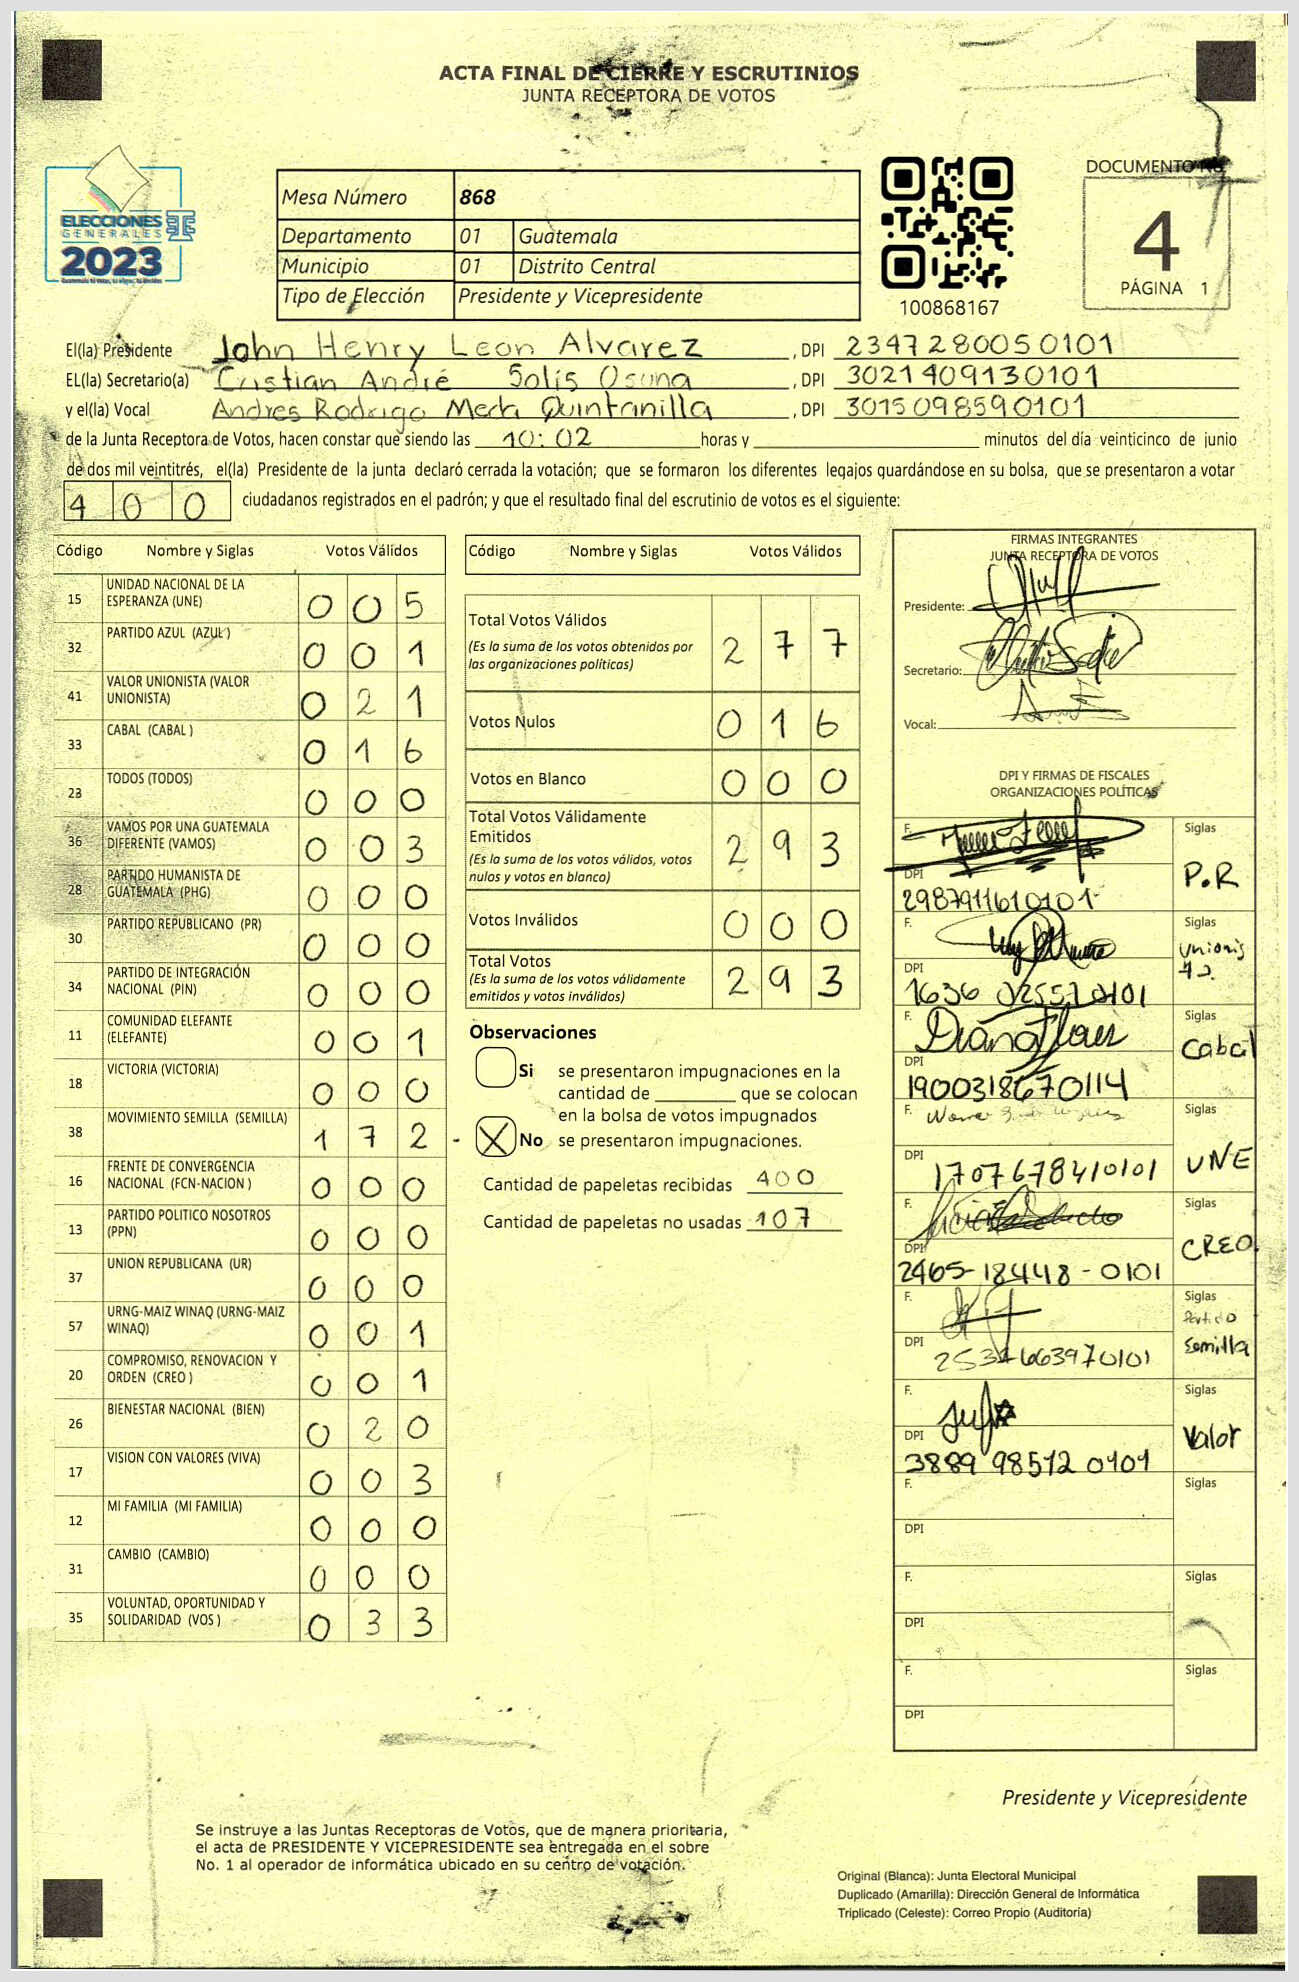 ACTA FINAL DE CIERRE Y ESCRUTINIOS
JUNTA RECEPTORA DE VOTOS
ELECCIONES
GENERALES
2023
Mesa Número 868
Departamento 01 Guatemala
Municipio 01 Distrito Central
Tipo de Elección Presidente y Vicepresidente
100868167
DOCUMENTO No.
4
PÁGINA 1
El(la) Presidente John Henry Leon Alvarez , DPI 2347280050101
EL(la) Secretario(a) Cristian André Solís Osuna , DPI 3021409130101
y el(la) Vocal Andres Rodrigo Quintanilla , DPI 3015098590101
de la Junta Receptora de Votos, hacen constar que siendo las 10:02 horas y minutos del día veinticinco de junio
de dos mil veintitrés, el(la) Presidente de la junta declaró cerrada la votación; que se formaron los diferentes legajos quardándose en su bolsa, que se presentaron a votar
400 ciudadanos registrados en el padrón; y que el resultado final del escrutinio de votos es el siguiente:
Código Nombre y Siglas Votos Válidos
15 UNIDAD NACIONAL DE LA ESPERANZA (UNE) 0 0 5
32 PARTIDO AZUL (AZUL) 0 0 1
41 VALOR UNIONISTA (VALOR UNIONISTA) 0 2 1
33 CABAL (CABAL) 0 1 6
23 TODOS (TODOS) 0 0 0
36 VAMOS POR UNA GUATEMALA DIFERENTE (VAMOS) 0 0 3
28 PARTIDO HUMANISTA DE GUATEMALA (PHG) 0 0 0
30 PARTIDO REPUBLICANO (PR) 0 0 0
34 PARTIDO DE INTEGRACIÓN NACIONAL (PIN) 0 0 0
11 COMUNIDAD ELEFANTE (ELEFANTE) 0 0 1
18 VICTORIA (VICTORIA) 0 0 0
38 MOVIMIENTO SEMILLA (SEMILLA) 1 7 2
16 FRENTE DE CONVERGENCIA NACIONAL (FCN-NACION) 0 0 0
13 PARTIDO POLITICO NOSOTROS (PPN) 0 0 0
37 UNION REPUBLICANA (UR) 0 0 0
57 URNG-MAIZ WINAQ (URNG-MAIZ WINAQ) 0 0 1
20 COMPROMISO, RENOVACION Y ORDEN (CREO) 0 0 1
26 BIENESTAR NACIONAL (BIEN) 0 2 0
17 VISION CON VALORES (VIVA) 0 0 3
12 MI FAMILIA (MI FAMILIA) 0 0 0
31 CAMBIO (CAMBIO) 0 0 0
35 VOLUNTAD, OPORTUNIDAD Y SOLIDARIDAD (VOS) 0 3 3
Código Nombre y Siglas Votos Válidos
Total Votos Válidos 2 7 7
(Es la suma de los votos obtenidos por las organizaciones políticas)
Votos Nulos 0 1 6
Votos en Blanco 0 0 0
Total Votos Válidamente Emitidos 2 9 3
(Es la suma de los votos válidos, votos nulos y votos en blanco)
Votos Inválidos 0 0 0
Total Votos 2 9 3
(Es la suma de los votos válidamente emitidos y votos inválidos)
Observaciones
Si se presentaron impugnaciones en la
cantidad de que se colocan
en la bolsa de votos impugnados
X No se presentaron impugnaciones.
Cantidad de papeletas recibidas 400
Cantidad de papeletas no usadas 107
FIRMAS INTEGRANTES
JUNTA RECEPTORA DE VOTOS
Presidente:
Secretario:
Vocal:
DPI Y FIRMAS DE FISCALES
ORGANIZACIONES POLÍTICAS
F. Siglas P.R
DPI 2987911610101
F. Siglas Unionista
DPI 1636 025570101
F. Siglas Cabal
DPI 1900318670114
F. Siglas UNE
DPI 1707678410101
F. Siglas CREO
DPI 2465-18448-0101
F. Siglas Partido Semilla
DPI 2534663970101
F. Siglas Valor
DPI 3889 98572 0101
F. Siglas
DPI
F. Siglas
DPI
F. Siglas
DPI
Presidente y Vicepresidente
Se instruye a las Juntas Receptoras de Votos, que de manera prioritaria,
el acta de PRESIDENTE Y VICEPRESIDENTE sea entregada en el sobre
No. 1 al operador de informática ubicado en su centro de votación.
Original (Blanca): Junta Electoral Municipal
Duplicado (Amarilla): Dirección General de Informática
Triplicado (Celeste): Correo Propio (Auditoría)